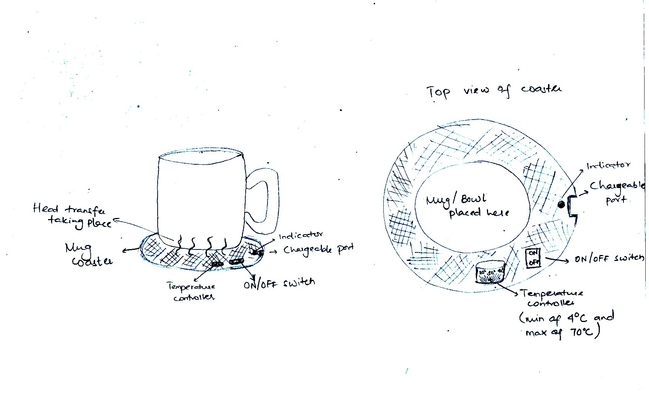 Top view of coaster
Heat transfer
taking place
Mug
Coaster
Indicator
Chargeable port
ON/OFF switch
Temperature
controller
Mug/Bowl
placed here
Indicator
Chargeable
port
ON
OFF
ON/OFF switch
Temperature
controller
(min of 4°C and
max of 70°C)